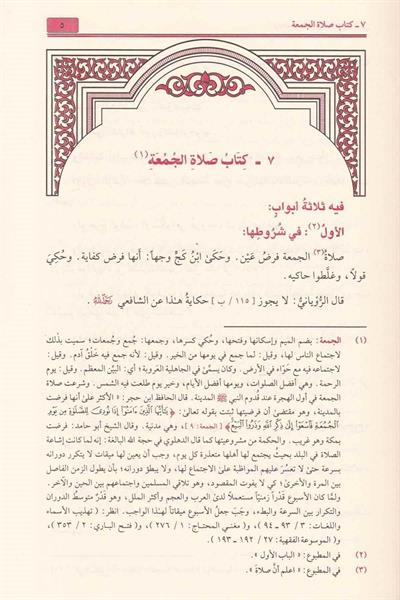 ٧ ـ كتاب صلاة الجمعة
٥
٧ ـ كِتَابُ صَلَاةِ الجُمْعَةِ (١)
فيه ثلاثةُ أبوابٍ:
الأولُ(٢): في شُرُوطِها:
صلاةُ(٣) الجمعة فرضُ عَيْنٍ. وحكىٰ ابْنُ كَجٍّ وجهاً: أنها فرض كفاية. وحُكِيَ
قولًا، وغلَّطوا حاكيه.
قال الرُّويانيُّ: لا يجوز [ ١١٥ / ب ] حكايةُ هٰذا عن الشافعي رَحِمَهُ اللهُ.
(١) الجمعة: بضم الميم وإسكانها وفتحها، وحُكي كسرها، وجمعها: جمع وجُمعات؛ سميت بذلك
لاجتماع الناس لها، وقيل: لما جمع في يومها من الخير. وقيل: لأنه جمع فيه خَلْقُ آدم. وقيل:
لاجتماعه فيه مع حوَّاء في الأرض. وكان يسمَّىٰ في الجاهلية العَروبة؛ أي: البَيِّن المعظم. وقيل: يوم
الرحمة. وهي أفضل الصلوات، ويومها أفضل الأيام، وخير يوم طلعت فيه الشمس. وشرعت صلاة
الجمعة في أول الهجرة عند قُدوم النبي ﷺ المدينة. قال الحافظ ابن حجر: « الأكثر علىٰ أنها فرضت
بالمدينة، وهو مقتضىٰ أن فرضيتها ثبتت بقوله تعالىٰ: ﴿ يَٰٓأَيُّهَا ٱلَّذِينَ ءَامَنُوٓا۟ إِذَا نُودِىَ لِلصَّلَوٰةِ مِن يَوْمِ
ٱلْجُمُعَةِ فَٱسْعَوْا۟ إِلَىٰ ذِكْرِ ٱللَّهِ وَذَرُوا۟ ٱلْبَيْعَ ﴾ [ الجمعة: ٩ ]، وهي مدنية. وقال الشيخ أبو حامد: فرضت
بمكة وهو غريب. والحكمة من مشروعيتها كما قال الدهلوي في حجة الله البالغة: إنه لما كانت إشاعة
الصلاة في البلد بحيث يجتمع لها أهلها متعذرة كل يوم، وجب أن يعين لها ميقات لا يتكرر دورانه
بسرعة حتىٰ لا تعسُر عليهم المواظبة علىٰ الاجتماع لها، ولا يبطؤ دورانه؛ بأن يطول الزمن الفاصل
بين المرة والأخرىٰ؛ كي لا يفوت المقصود، وهو تلاقي المسلمين واجتماعهم بين الحين والآخر.
ولمَّا كان الأسبوع قَدْراً زمنيّاً مستعملاً لدىٰ العرب والعجم وأكثر الملل، وهو قَدْرٌ متوسط الدوران
والتكرار بين السرعة والبطء، وجَبَ جعلُ الأسبوع ميقاتاً لهذا الواجب. انظر: ( تهذيب الأسماء
واللغات: ٣ / ٩٣ ـ ٩٤ )، و( مغني المحتاج: ١ / ٢٧٦ )، و( فتح الباري: ٢ / ٣٥٣ )،
و( الموسوعة الفقهية: ٢٧ / ١٩٢ ـ ١٩٣ ).
(٢) في المطبوع: « الباب الأول ».
(٣) في المطبوع: « اعلم أنَّ صلاة ».